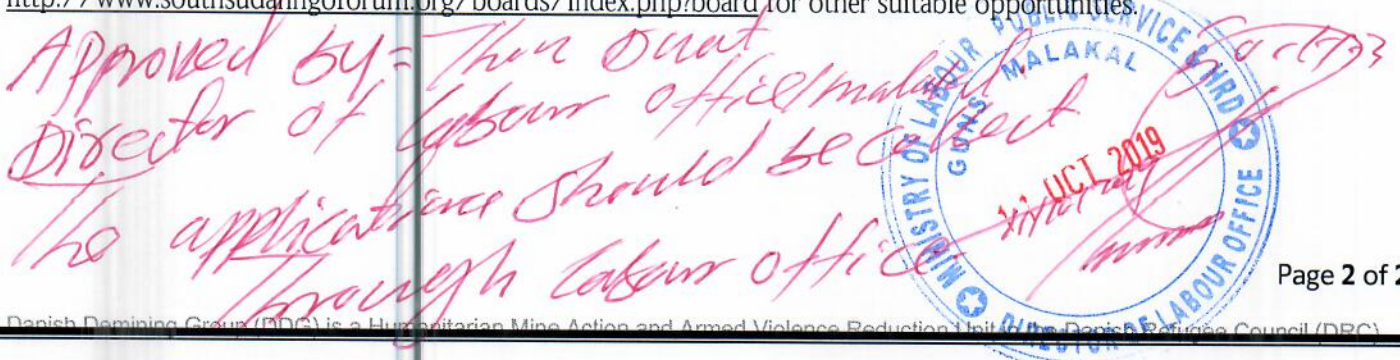 http://www.southsudanngoforum.org/boards/index.php?board for other suitable opportunities.
Approved by = Thon Duat
Director of Labour office/malakal
The applications should be collect
through labour office
MINISTRY OF LABOUR PUBLIC SERVICE & HRD
GUNS MALAKAL
11 OCT 2019
DIRECTOR OF LABOUR OFFICE
Page 2 of 2
Danish Demining Group (DDG) is a Humanitarian Mine Action and Armed Violence Reduction Unit Danish Refugee Council (DRC)